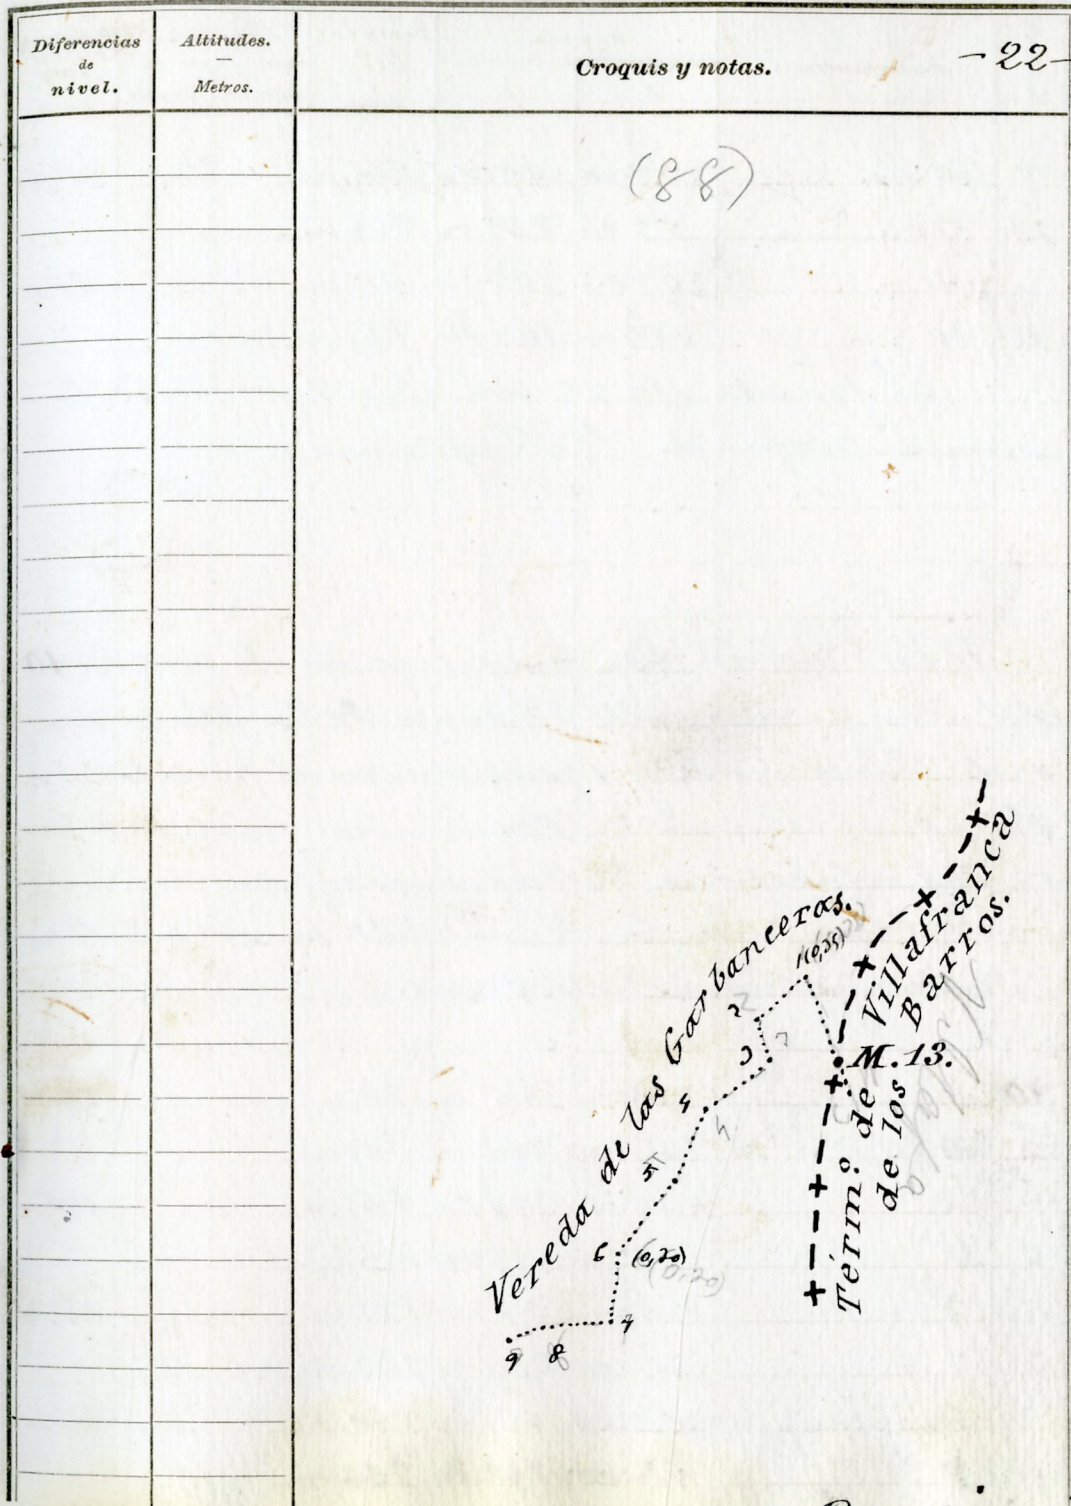 Diferencias
de
nivel.
Altitudes.
Metros.
Croquis y notas.
-22-
(88)
Vereda de las Garbanceras.
1(0,25)
2
3
4
5
6
(0,20)
(0,20)
7
8
9
M. 13.
Térmº de Villafranca
de los Barros.